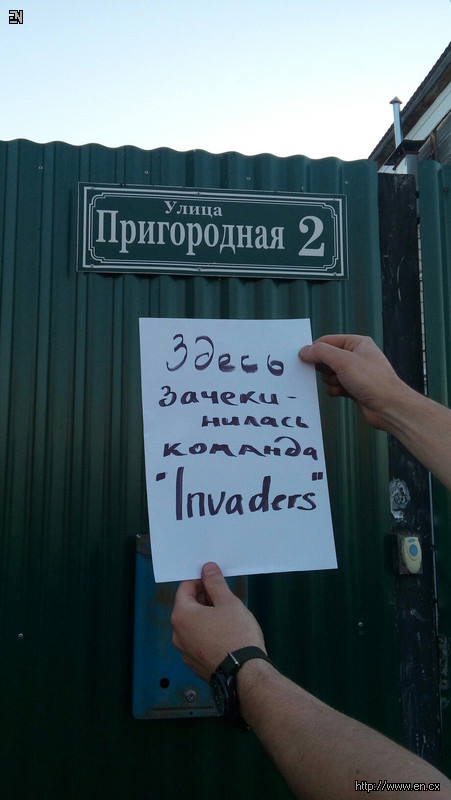 EN
Улица
Пригородная 2
Здесь
зачеки-
нилась
команда
"Invaders"
http://www.en.cx